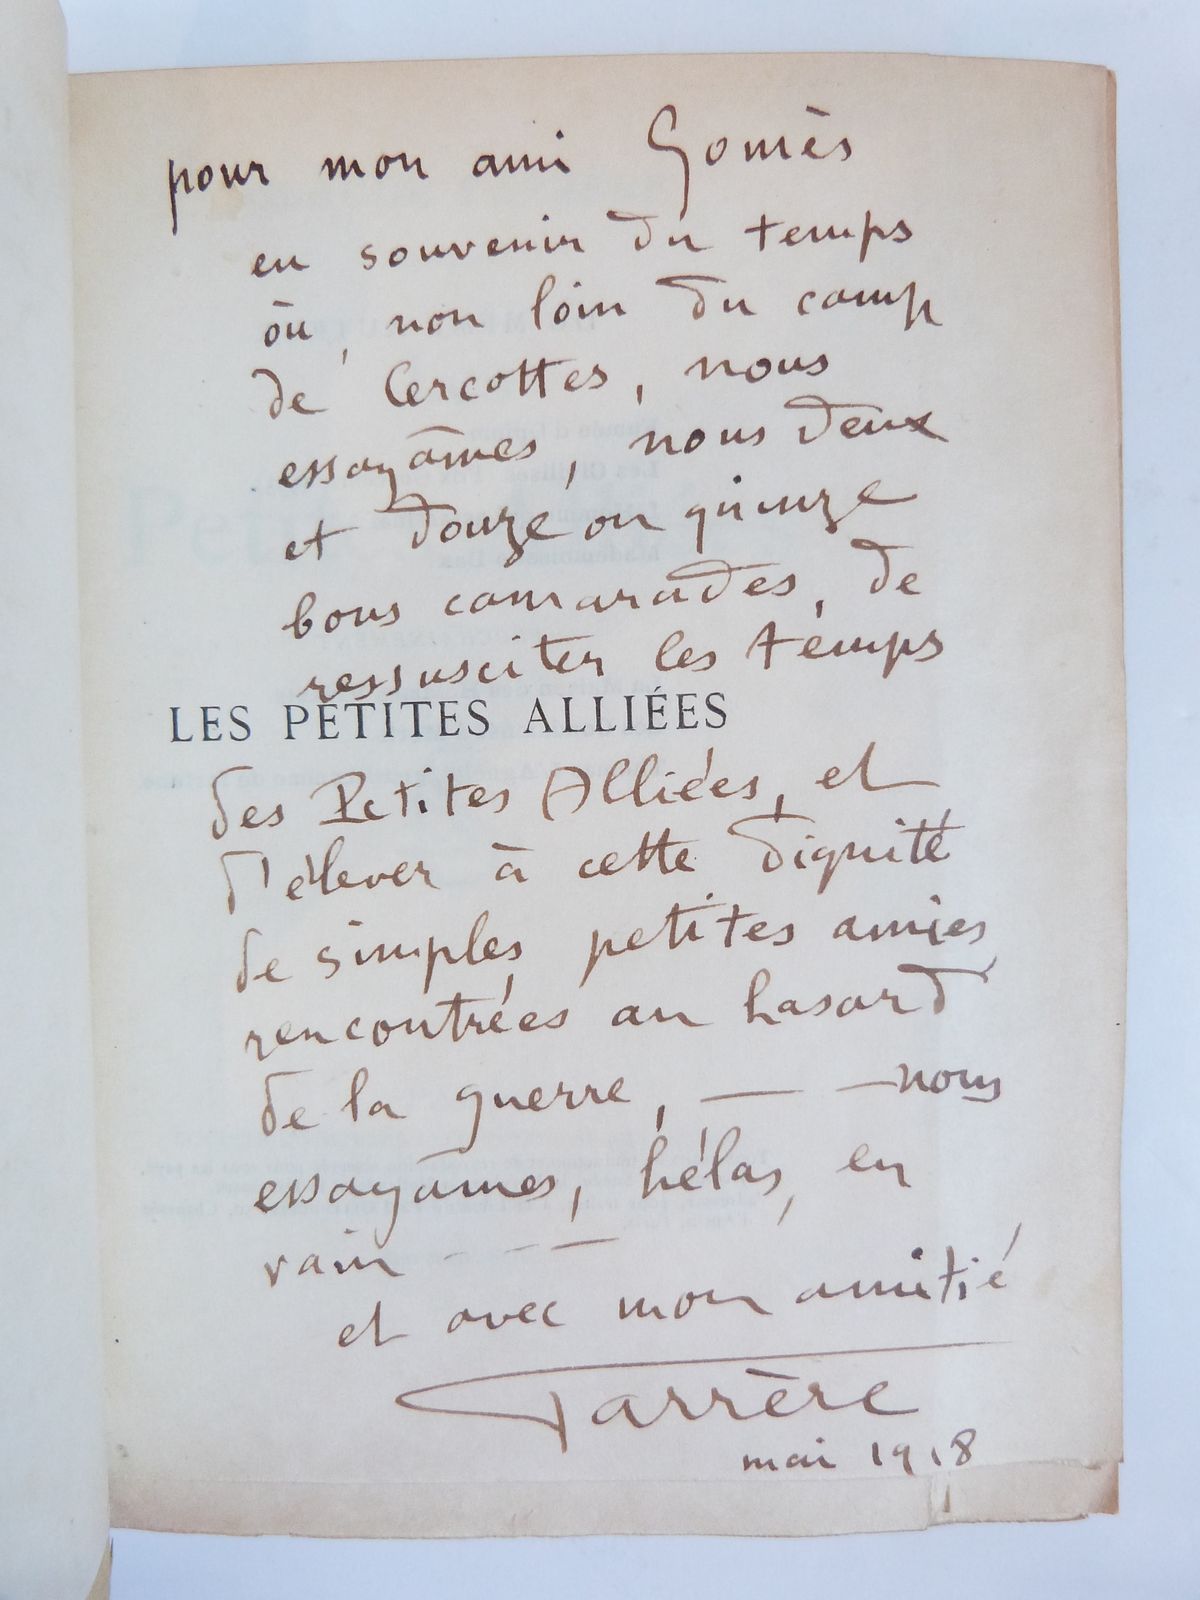 pour mon ami Gomès
en souvenir du temps
où, non loin du camp
de Cercottes, nous
essayâmes, nous deux
et douze ou quinze
bons camarades, de
ressusciter les temps
LES PETITES ALLIÉES
des Petites Alliées, et
d'élever à cette dignité
de simples petites amies
rencontrées au hasard
de la guerre, — — nous
essayâmes, hélas, en
vain - - —
et avec mon amitié
Farrère
mai 1918